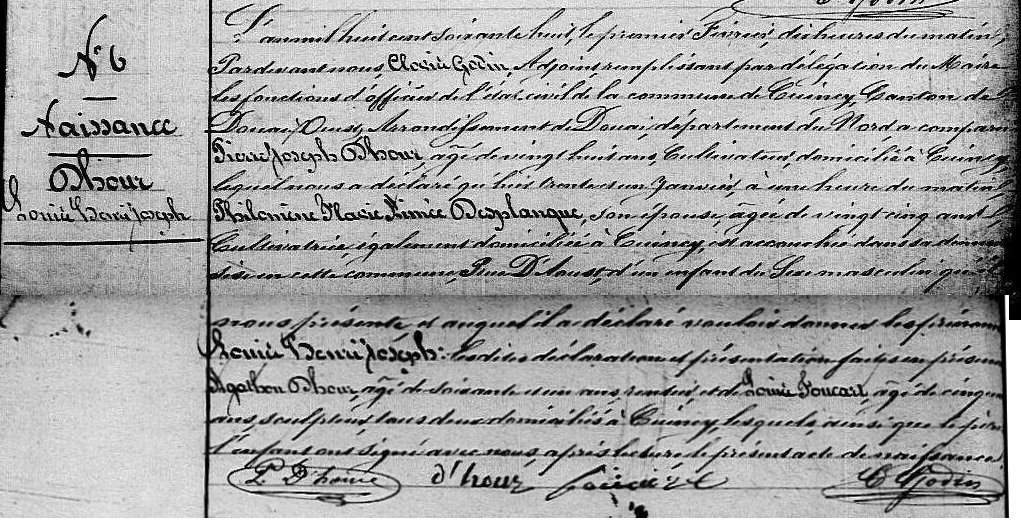 N° 6
Naissance
Dhour
Louis Henri Joseph
L'an mil huit cent soixante huit, le premier Février, dix heures du matin,
Pardevant nous, Clovis Godin, Adjoint remplissant par délégation du Maire
les fonctions d'officier de l'état civil de la commune de Cuincy, Canton de
Douai, Ouest, Arrondissement de Douai, département du Nord a comparu
Pierre Joseph Dhour, âgé de vingt huit ans, Cultivateur, domicilié à Cuincy,
lequel nous a déclaré que le trente un Janvier, à une heure du matin
Philomène Marie Aimée Desplanque, son épouse, âgée de vingt cinq ans,
Cultivatrice, également domiciliée à Cuincy, est accouchée dans sa
en cette commune, Rue d'un enfant du Sexe masculin qu'il
nous présente et auquel il a déclaré vouloir donner les prénoms
Louis Henri Joseph: lesdites déclaration et présentation faites en présence
Agathon Dhour, âgé de soixante un ans, rentier, et de Louis Foucart, âgé de cinquante
ans, sculpteur, tous deux domiciliés à Cuincy lesquels, ainsi que le père
l'enfant ont signé avec nous, après lecture le présent acte de naissance.
P D'hour d'hour C Godin